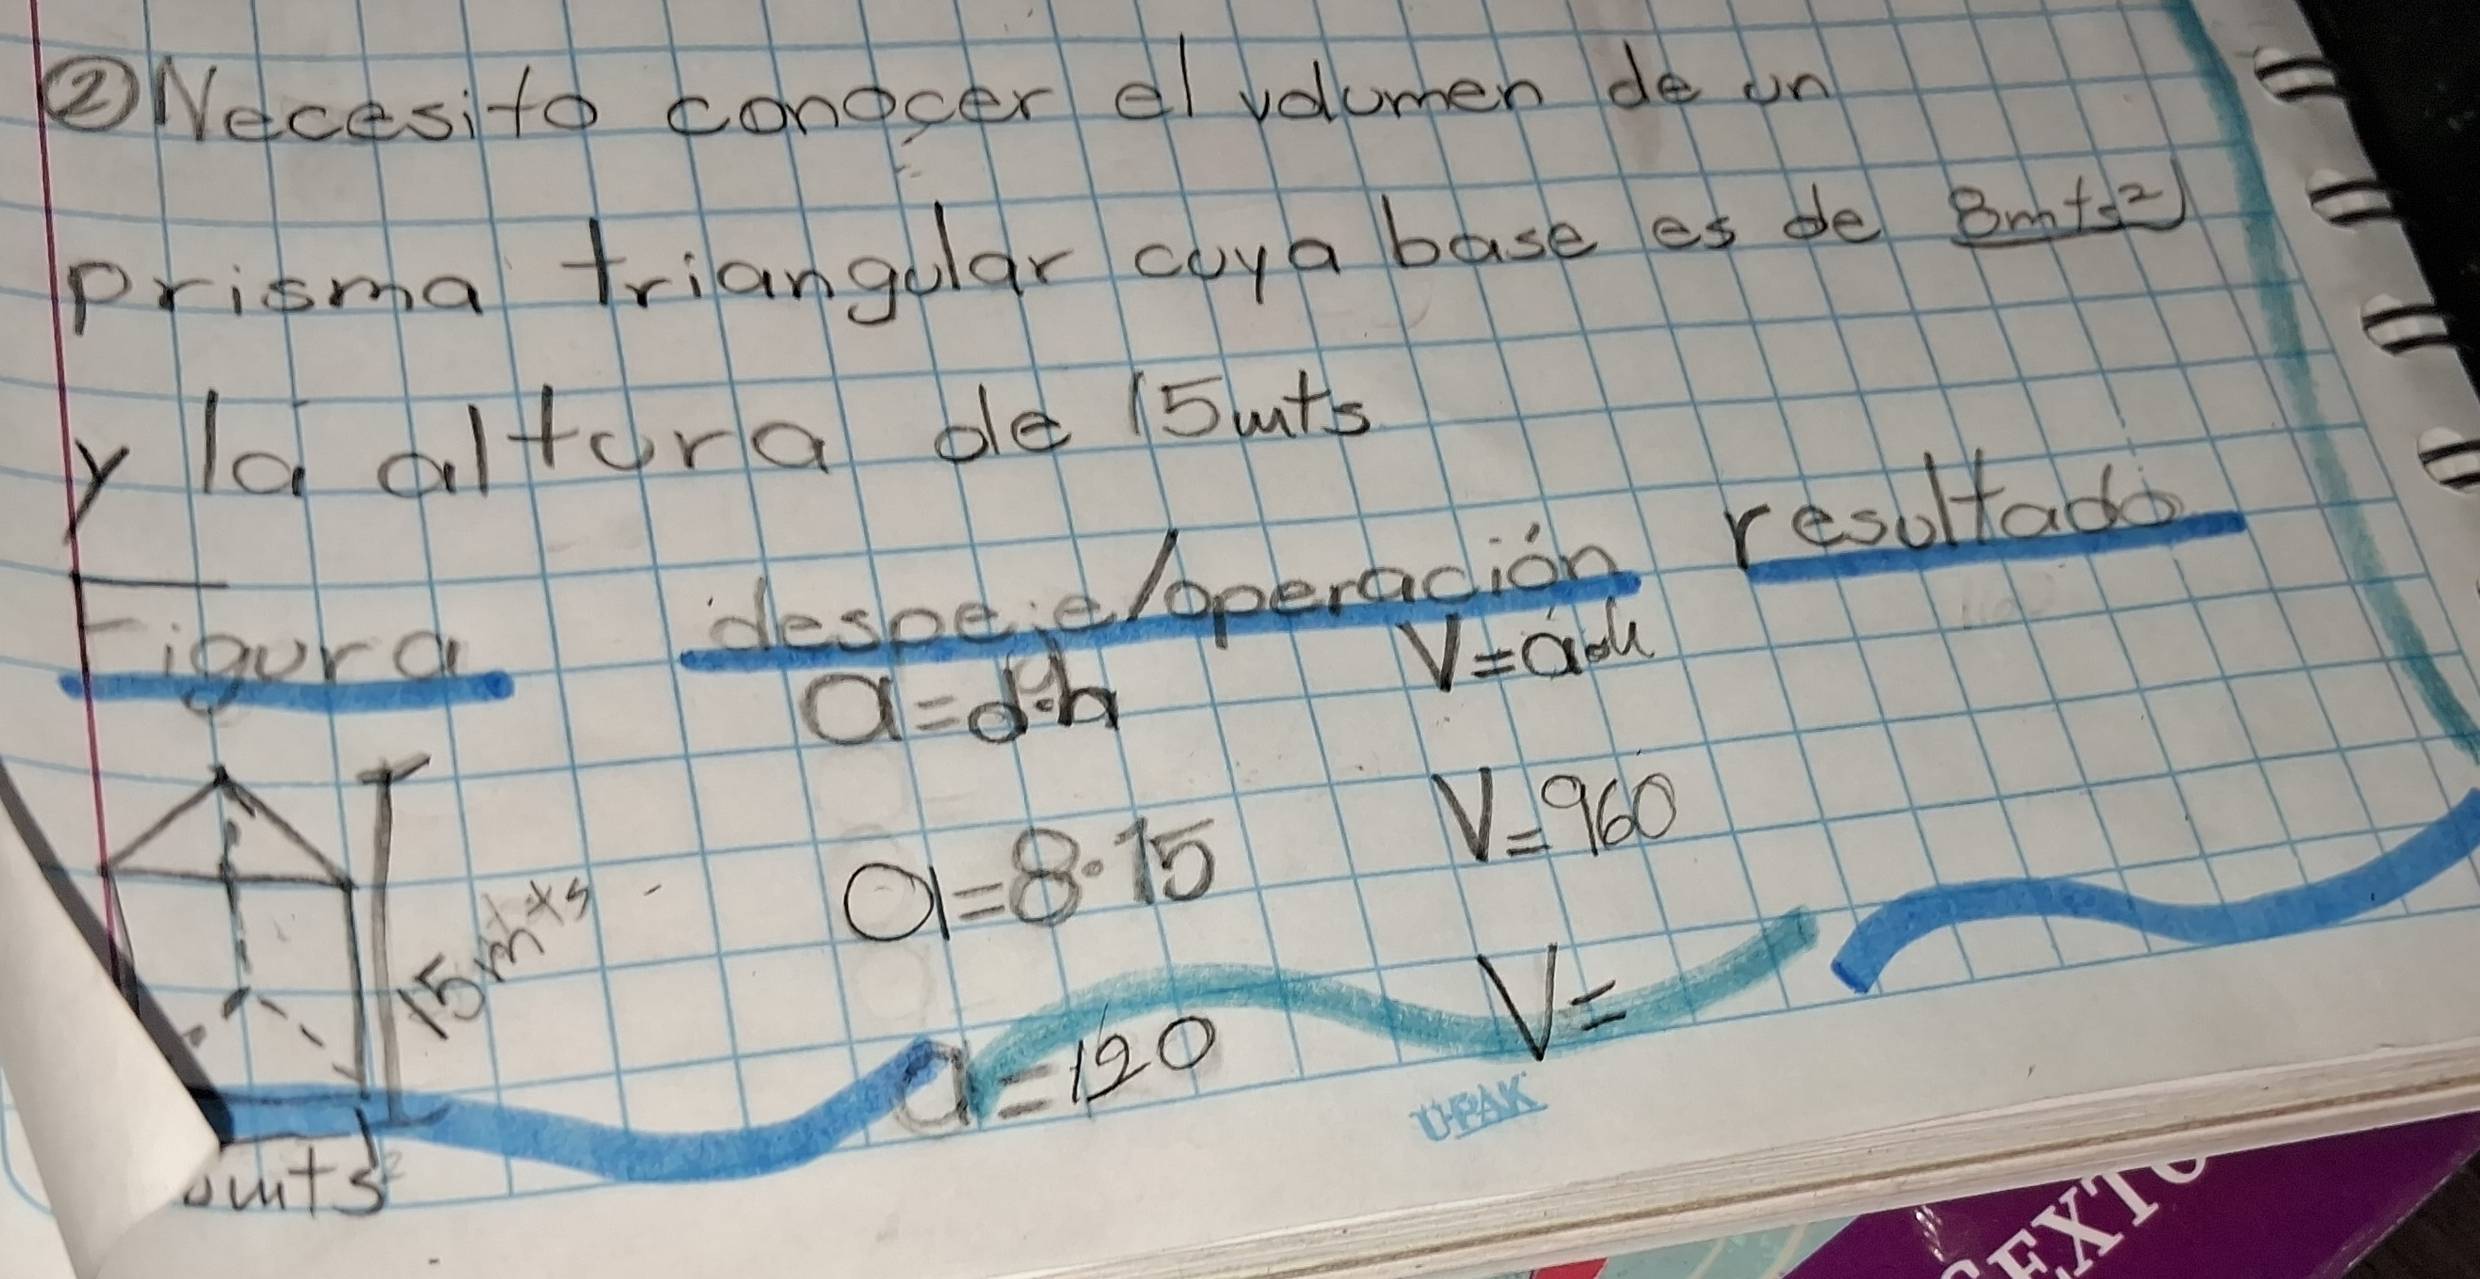 ② Necesito conocer el volumen de un
prisma triangular cuya base es de 8mts²
y la altura de 15mts
Figura despeje/operación resultado
V=a·h
15mts
a=8·15
V=960
a=120
V=
mts²
U-PAK
SEXTO